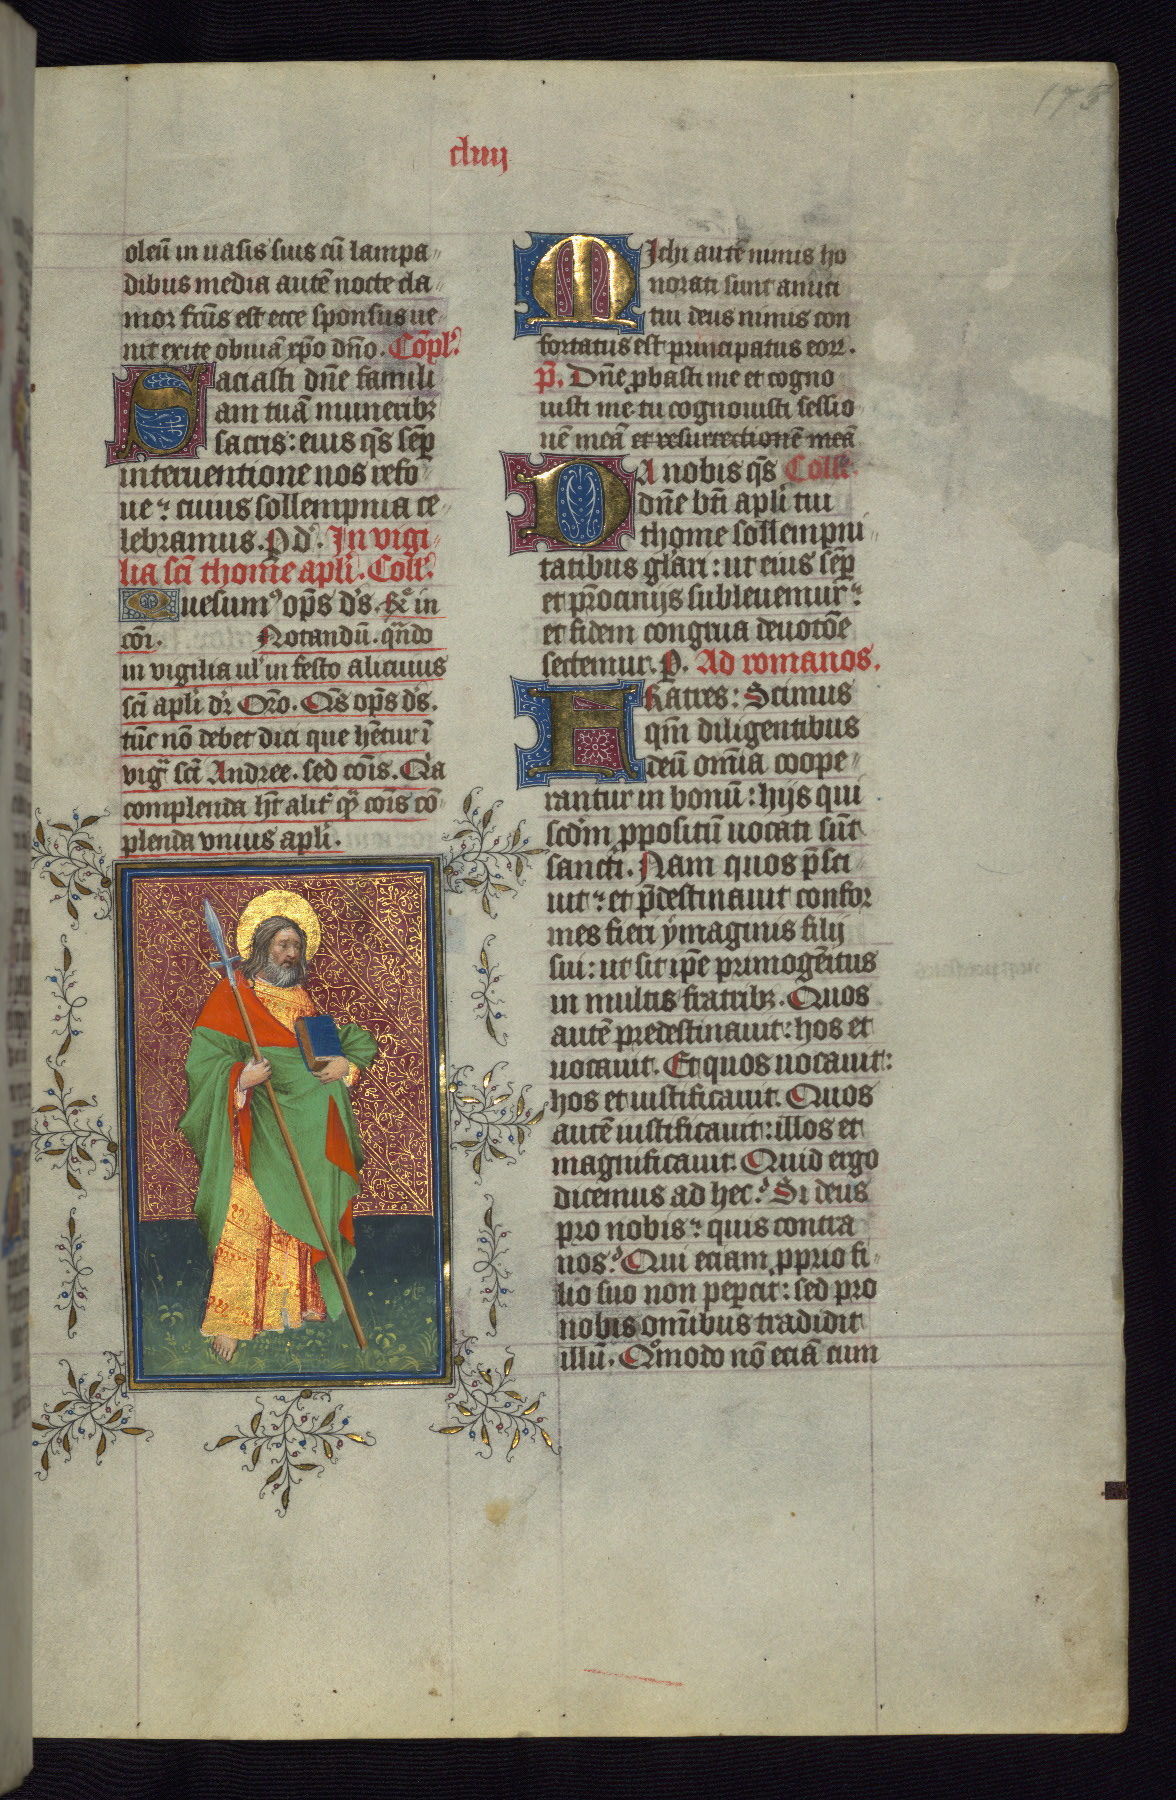 175
cliiij
oleū in uasis suis cū lampa
dibus media autē nocte cla
mor fctūs est ecce sponsus ue
nit exite obuiā xp̄o dn̄o. Cōpl'.
Saciasti dn̄e famili
am tuā munerib;
sacris: eius q̄s sēp
interuentione nos refo
ue: cuius sollempnia ce
lebramus. P d'. In vigi
lia sc̄i thome apl'i. Coll'.
Quesum' op̄s d's. &c in
cōi. Notandū. qn̄do
in vigilia ul' in festo alicuius
sc̄i apl'i dr̄ Oro. Q̄s op̄s d's.
tūc nō debet dici que hētur ī
vig' sc̄i Andree. sed cōis.
complenda hr̄ alit' cōis cō
plenda vnius apl'i.
Michi autē nimis ho
norati sunt amici
tui deus nimis con
fortatus est principatus eorꝝ.
P̄. Dn̄e ꝓbasti me et cogno
uisti me tu cognouisti sessio
nē meā et resurrectionē meā
DA nobis q̄s Coll'.
dn̄e bt̄i apl'i tui
thome sollempni
tatibus glāri: ut eius sēp
et pr̄ocinijs subleuemur:
et fidem congrua deuotōe
sectemur. P. Ad romanos.
FRatres: Scimus
qm̄ diligentibus
deū om̄ia coope
rantur in bonū: hijs qui
scd̄m ꝓpositū uocati sūt
sancti. Nam quos p̄sci
uit: et p̄destinauit confor
mes fieri ymaginis filij
sui: ut sit ip̄e primogēitus
in multis fratrib;. Quos
autē predestinauit: hos et
uocauit. Et quos uocauit:
hos et iustificauit. Quos
autē iustificauit: illos et
magnificauit. Quid ergo
dicemus ad hec? Si deus
pro nobis: quis contra
nos? Qui eciam ꝓprio fi
lio suo non peꝑcit: sed pro
nobis om̄ibus tradidit
illū. Qomodo nō eciā cum